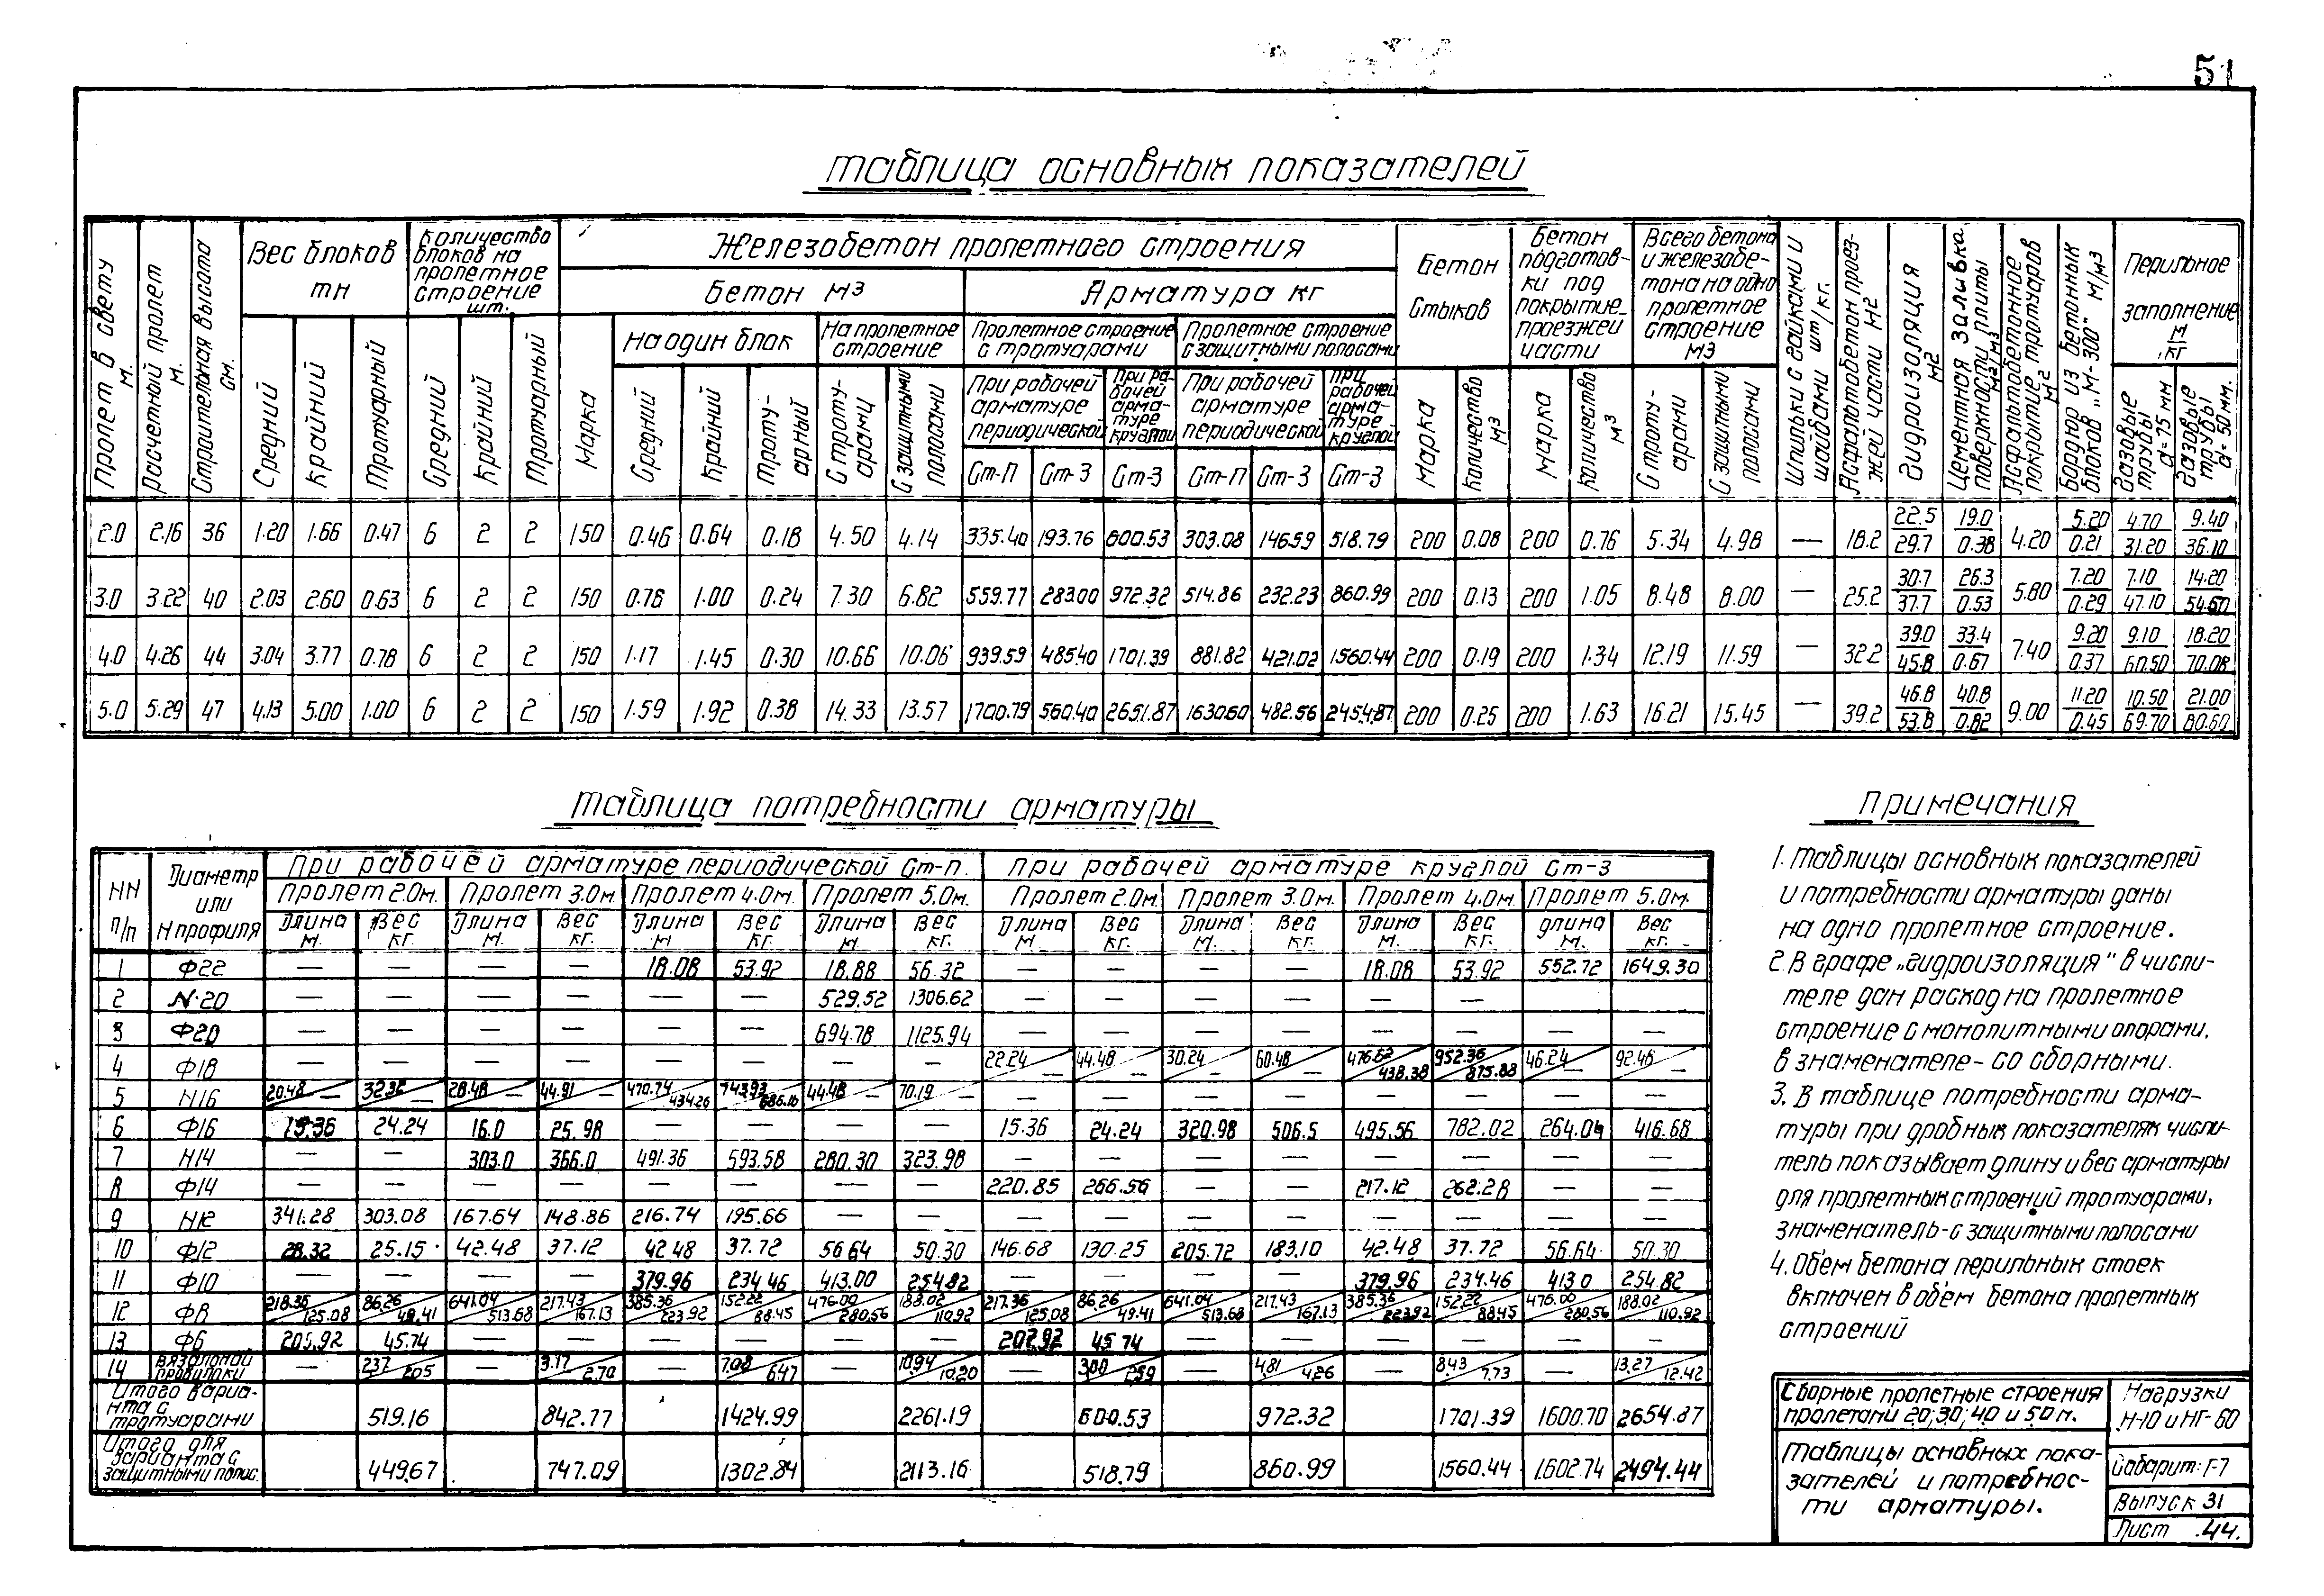 51
Таблица основных показателей
Пролет в свету м.
Расчетный пролет м.
Строительная высота см.
Вес блоков тн
Средний
Крайний
Тротуарный
Количество блоков на пролетное строение шт.
Средний
Крайний
Тротуарный
Железобетон пролетного строения
Бетон м3
Марка
На один блок
Средний
Крайний
Троту-арный
На пролетное строение
С троту-арами
С защитными полосами
Арматура кг
Пролетное строение с тротуарами
При рабочей арматуре периодической
Ст-П
Ст-3
При ра-бочей арма-туре круглой
Ст-3
Пролетное строение с защитными полосами
При рабочей арматуре периодической
Ст-П
Ст-3
При рабочей арма-туре круглой
Ст-3
Бетон стыков
Марка
Количество м3
Бетон подготов-ки под покрытие проезжей части
Марка
Количество м3
Всего бетона и железобе-тона на одно пролетное строение м3
С троту-арами
С защитными полосами
Шпильки с гайками и шайбами шт/кг.
Асфальтобетон проез-жей части м2
Гидроизоляция м2
Цементная заливка поверхности плиты м2/м3
Асфальтобетонное покрытие тротуаров м2
Бордюр из бетонных блоков „М-300" м/м3
Перильное заполнение м/кг
Газовые трубы d=75 мм
Газовые трубы d=50 мм.
2.0 2.16 36 1.20 1.66 0.47 6 2 2 150 0.46 0.64 0.18 4.50 4.14 335.40 193.76 600.53 303.08 146.59 518.79 200 0.08 200 0.76 5.34 4.98 — 18.2 22.5/29.7 19.0/0.38 4.20 5.20/0.21 4.70/31.20 9.40/36.10
3.0 3.22 40 2.03 2.60 0.63 6 2 2 150 0.78 1.00 0.24 7.30 6.82 559.77 283.00 972.32 514.86 232.23 860.99 200 0.13 200 1.05 8.48 8.00 — 25.2 30.7/37.7 26.3/0.53 5.80 7.20/0.29 7.10/47.10 14.20/54.50
4.0 4.26 44 3.04 3.77 0.78 6 2 2 150 1.17 1.45 0.30 10.66 10.06 939.59 485.40 1701.39 881.82 421.02 1560.44 200 0.19 200 1.34 12.19 11.59 — 32.2 39.0/45.8 33.4/0.67 7.40 9.20/0.37 9.10/60.50 18.20/70.08
5.0 5.29 47 4.13 5.00 1.00 6 2 2 150 1.59 1.92 0.38 14.33 13.57 1700.79 560.40 2651.87 1630.60 482.56 2454.87 200 0.25 200 1.63 16.21 15.45 — 39.2 46.8/53.8 40.8/0.82 9.00 11.20/0.45 10.50/69.70 21.00/80.60
Таблица потребности арматуры
НН п/п
Диаметр или Н профиля
При рабочей арматуре периодической Ст-П.
При рабочей арматуре круглой Ст-3
Пролет 2.0м. Пролет 3.0м. Пролет 4.0м. Пролет 5.0м. Пролет 2.0м. Пролет 3.0м. Пролет 4.0м. Пролет 5.0м.
Длина м. Вес кг. Длина м. Вес кг. Длина м Вес кг. Длина м. Вес кг. Длина м. Вес кг. Длина м. Вес кг. Длина м. Вес кг. Длина м. Вес кг.
1 Ф22 — — — — 18.08 53.92 18.88 56.32 — — — — 18.08 53.92 552.72 1649.30
2 N·20 — — — — — — 529.52 1306.62 — — — — — —
3 Ф20 — — — — — — 694.78 1125.94 — — — — — — — —
4 Ф18 — — — — — — — — 22.24/— 44.48/— 30.24/— 60.48/— 476.62/438.38 952.36/875.88 46.24/— 92.46/—
5 Н16 20.48/— 32.32/— 28.48/— 44.91/— 470.74/434.26 743.93/686.16 44.48/— 70.19/— — — — — — — — —
6 Ф16 15.36 24.24 16.0 25.98 — — — — 15.36 24.24 320.98 506.5 495.56 782.02 264.04 416.68
7 Н14 — — 303.0 366.0 491.36 593.58 280.30 323.98 — — — — — — — —
8 Ф14 — — — — — — — — 220.85 266.56 — — 217.12 262.28 — —
9 Н12 341.28 303.08 167.64 148.86 216.74 195.66 — — — — — — — — — —
10 Ф12 28.32 25.15 42.48 37.12 42.48 37.72 56.64 50.30 146.68 130.25 205.72 183.10 42.48 37.72 56.64 50.30
11 Ф10 — — — — 379.96 234.46 413.00 254.82 — — — — 379.96 234.46 413.0 254.82
12 Ф8 218.36/125.08 86.26/49.41 641.04/513.68 217.43/167.13 385.36/223.92 152.22/88.45 476.00/280.56 188.02/110.92 217.36/125.08 86.26/49.41 641.04/513.68 217.43/167.13 385.36/223.92 152.22/88.45 476.00/280.56 188.02/110.92
13 Ф6 205.92 45.74 — — — — — — 207.92 45.74 — — — — — —
14 Вязальной проволоки — 2.37/2.05 — 3.17/2.70 — 7.08/6.47 — 10.94/10.20 — 3.00/2.59 — 4.81/4.26 — 8.43/7.73 — 13.27/12.42
Итого вариа-нта с тротуарами 519.16 842.77 1424.99 2261.19 600.53 972.32 1701.39 1600.70 2654.87
Итого для варианта с защитными полос. 449.67 747.09 1302.84 2113.16 518.79 860.99 1560.44 1602.74 2494.44
Примечания
1. Таблицы основных показателей
и потребности арматуры даны
на одно пролетное строение.
2. В графе „гидроизоляция" в числи-
теле дан расход на пролетное
строение с монолитными опорами,
в знаменателе – со сборными.
3. В таблице потребности арма-
туры при дробных показателях числи-
тель показывает длину и вес арматуры
для пролетных строений тротуарами,
знаменатель-с защитными полосами
4. Обем бетона перильных стоек
включен в обем бетона пролетных
строений
Сборные пролетные строения
пролетами 2.0; 3.0; 4.0 и 5.0 м.
Нагрузки
Н-10 и НГ-60
Таблицы основных пока-
зателей и потребнос-
ти арматуры.
Габарит: Г-7
Выпуск 31
Лист 44.